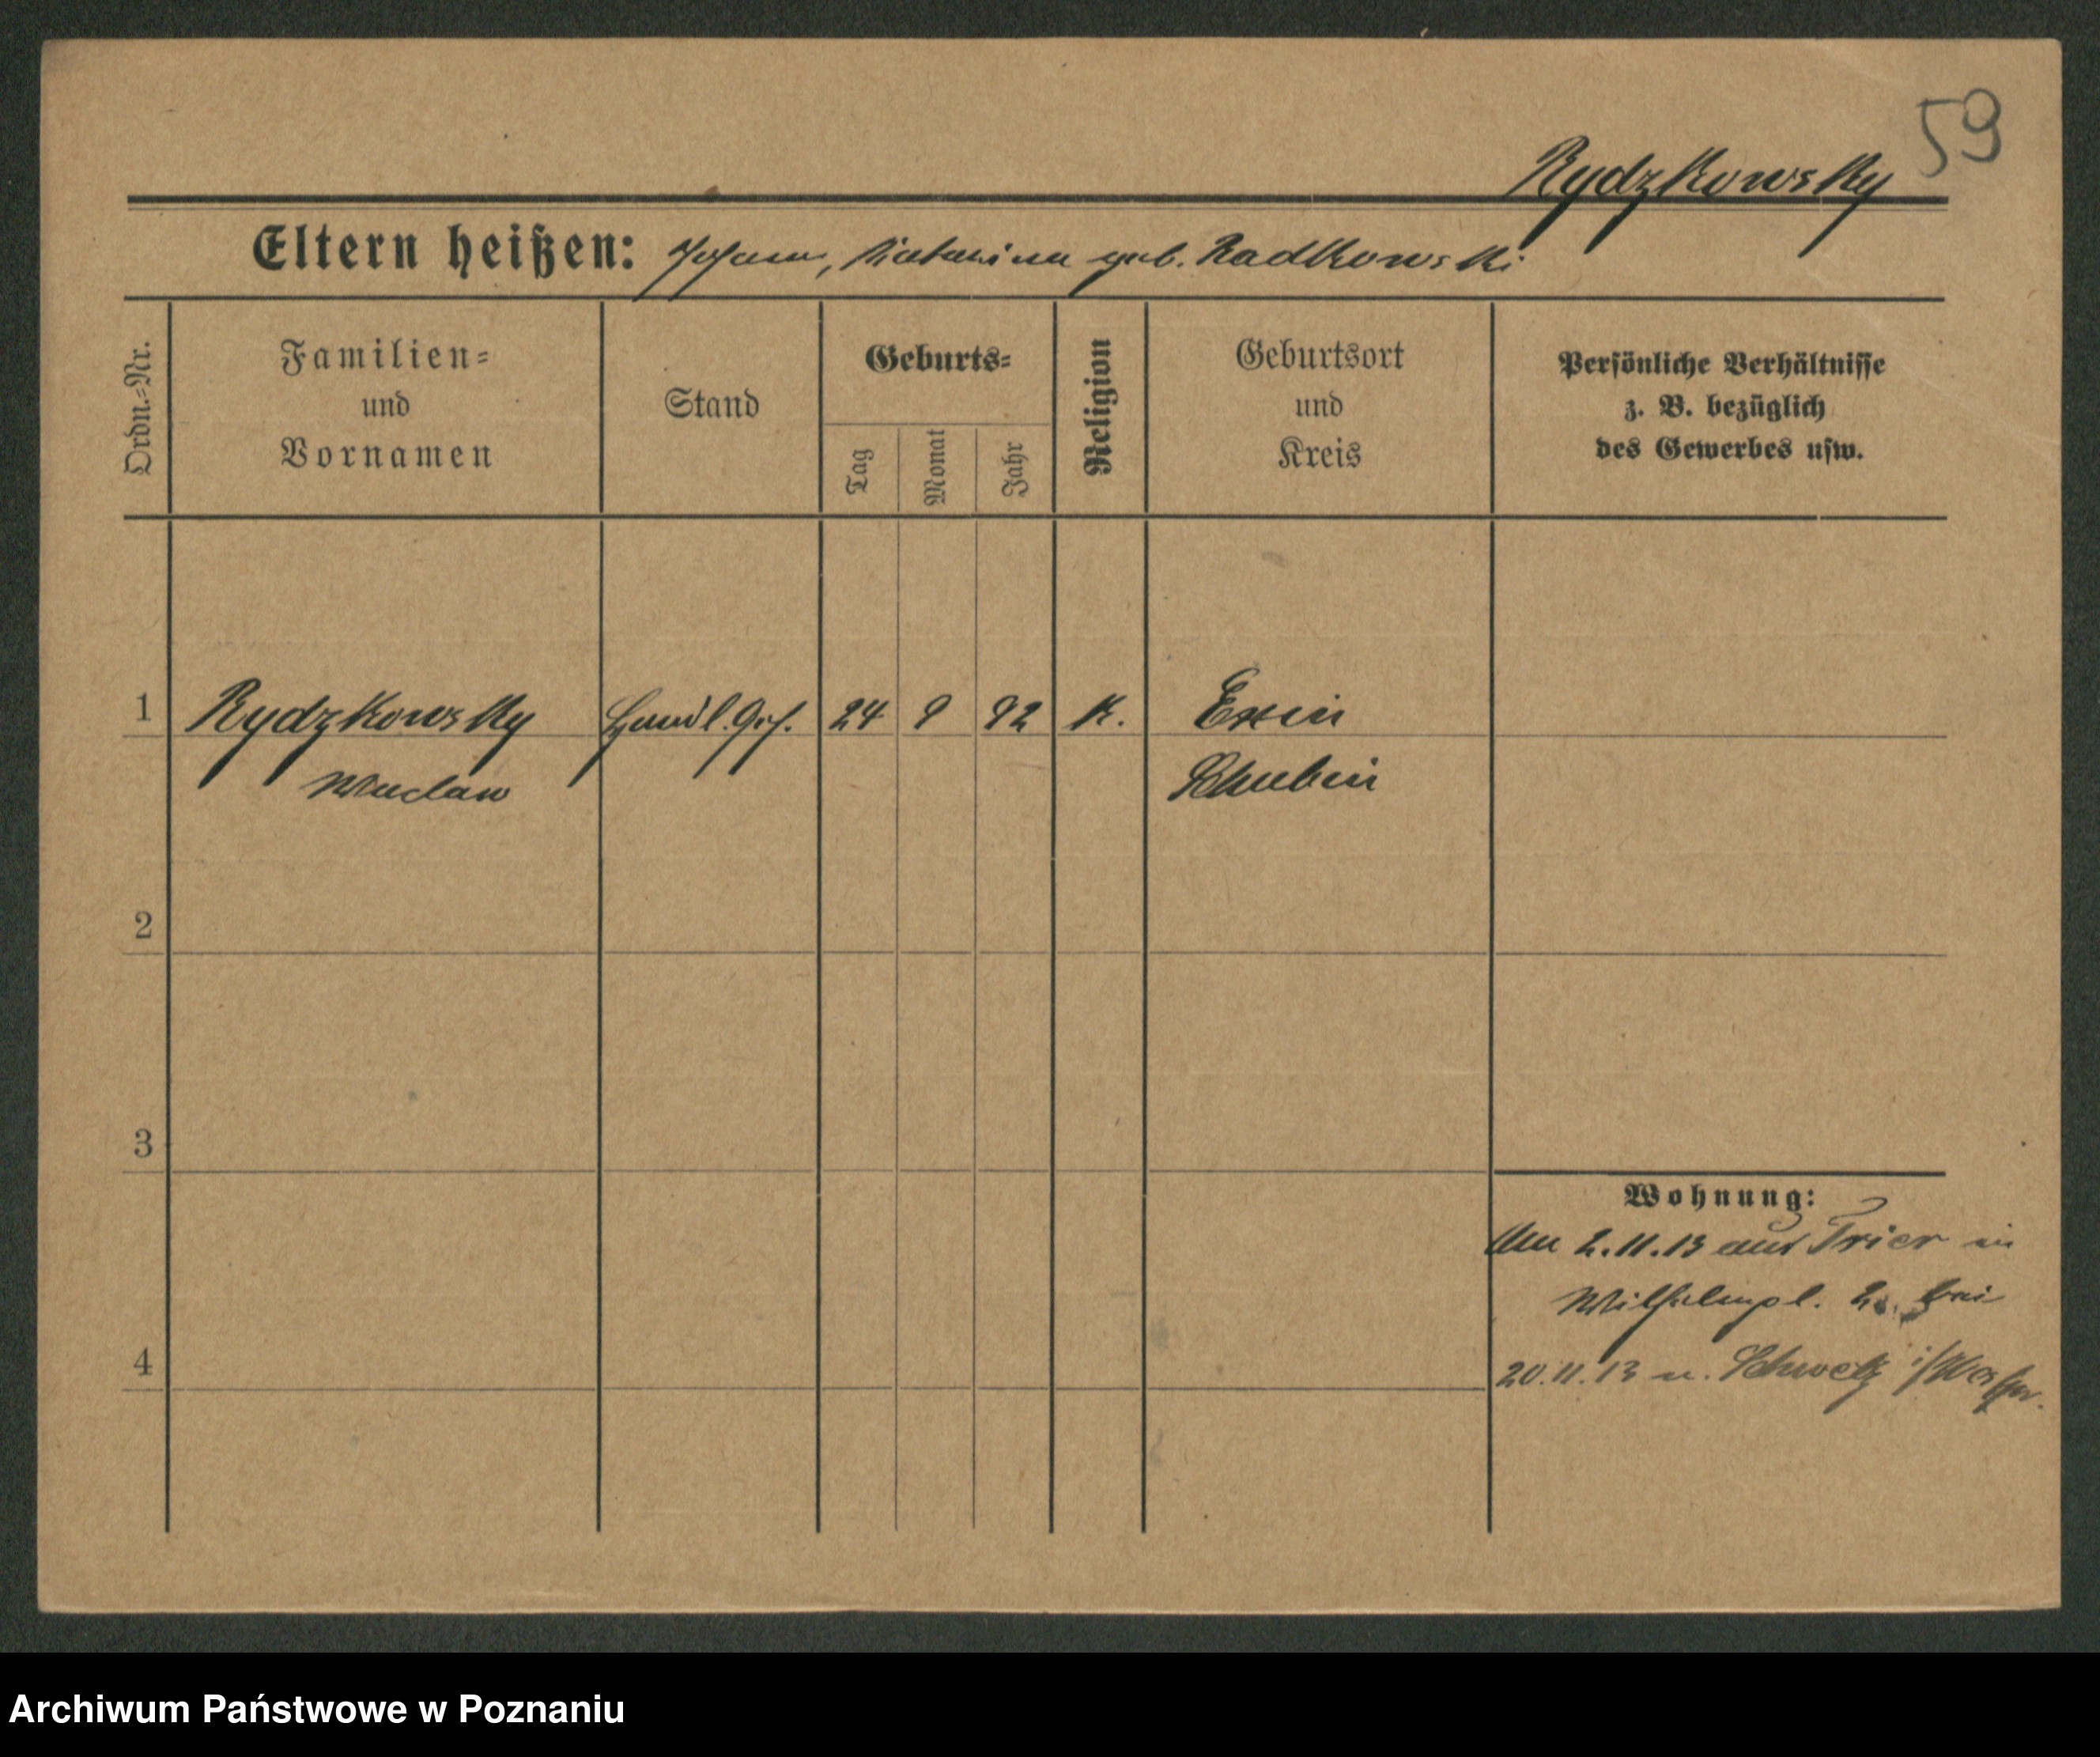 59
Rydzkowsky
Eltern heißen: Johann, Katarina geb. Radkowski
Ordn.=Nr.
Familien=
und
Vornamen
Stand
Geburts=
Tag
Monat
Jahr
Religion
Geburtsort
und
Kreis
Persönliche Verhältnisse
z. B. bezüglich
des Gewerbes usw.
1 Rydzkowsky Handl. Geh. 24 9 92 K. Exin
Waclaw Schubin
2
3
Wohnung:
Am 2.11.13 aus Trier in
Wilhelmpl. 2 bei
4
20.11.13 n. Schwetz i/Westpr.
Archiwum Państwowe w Poznaniu